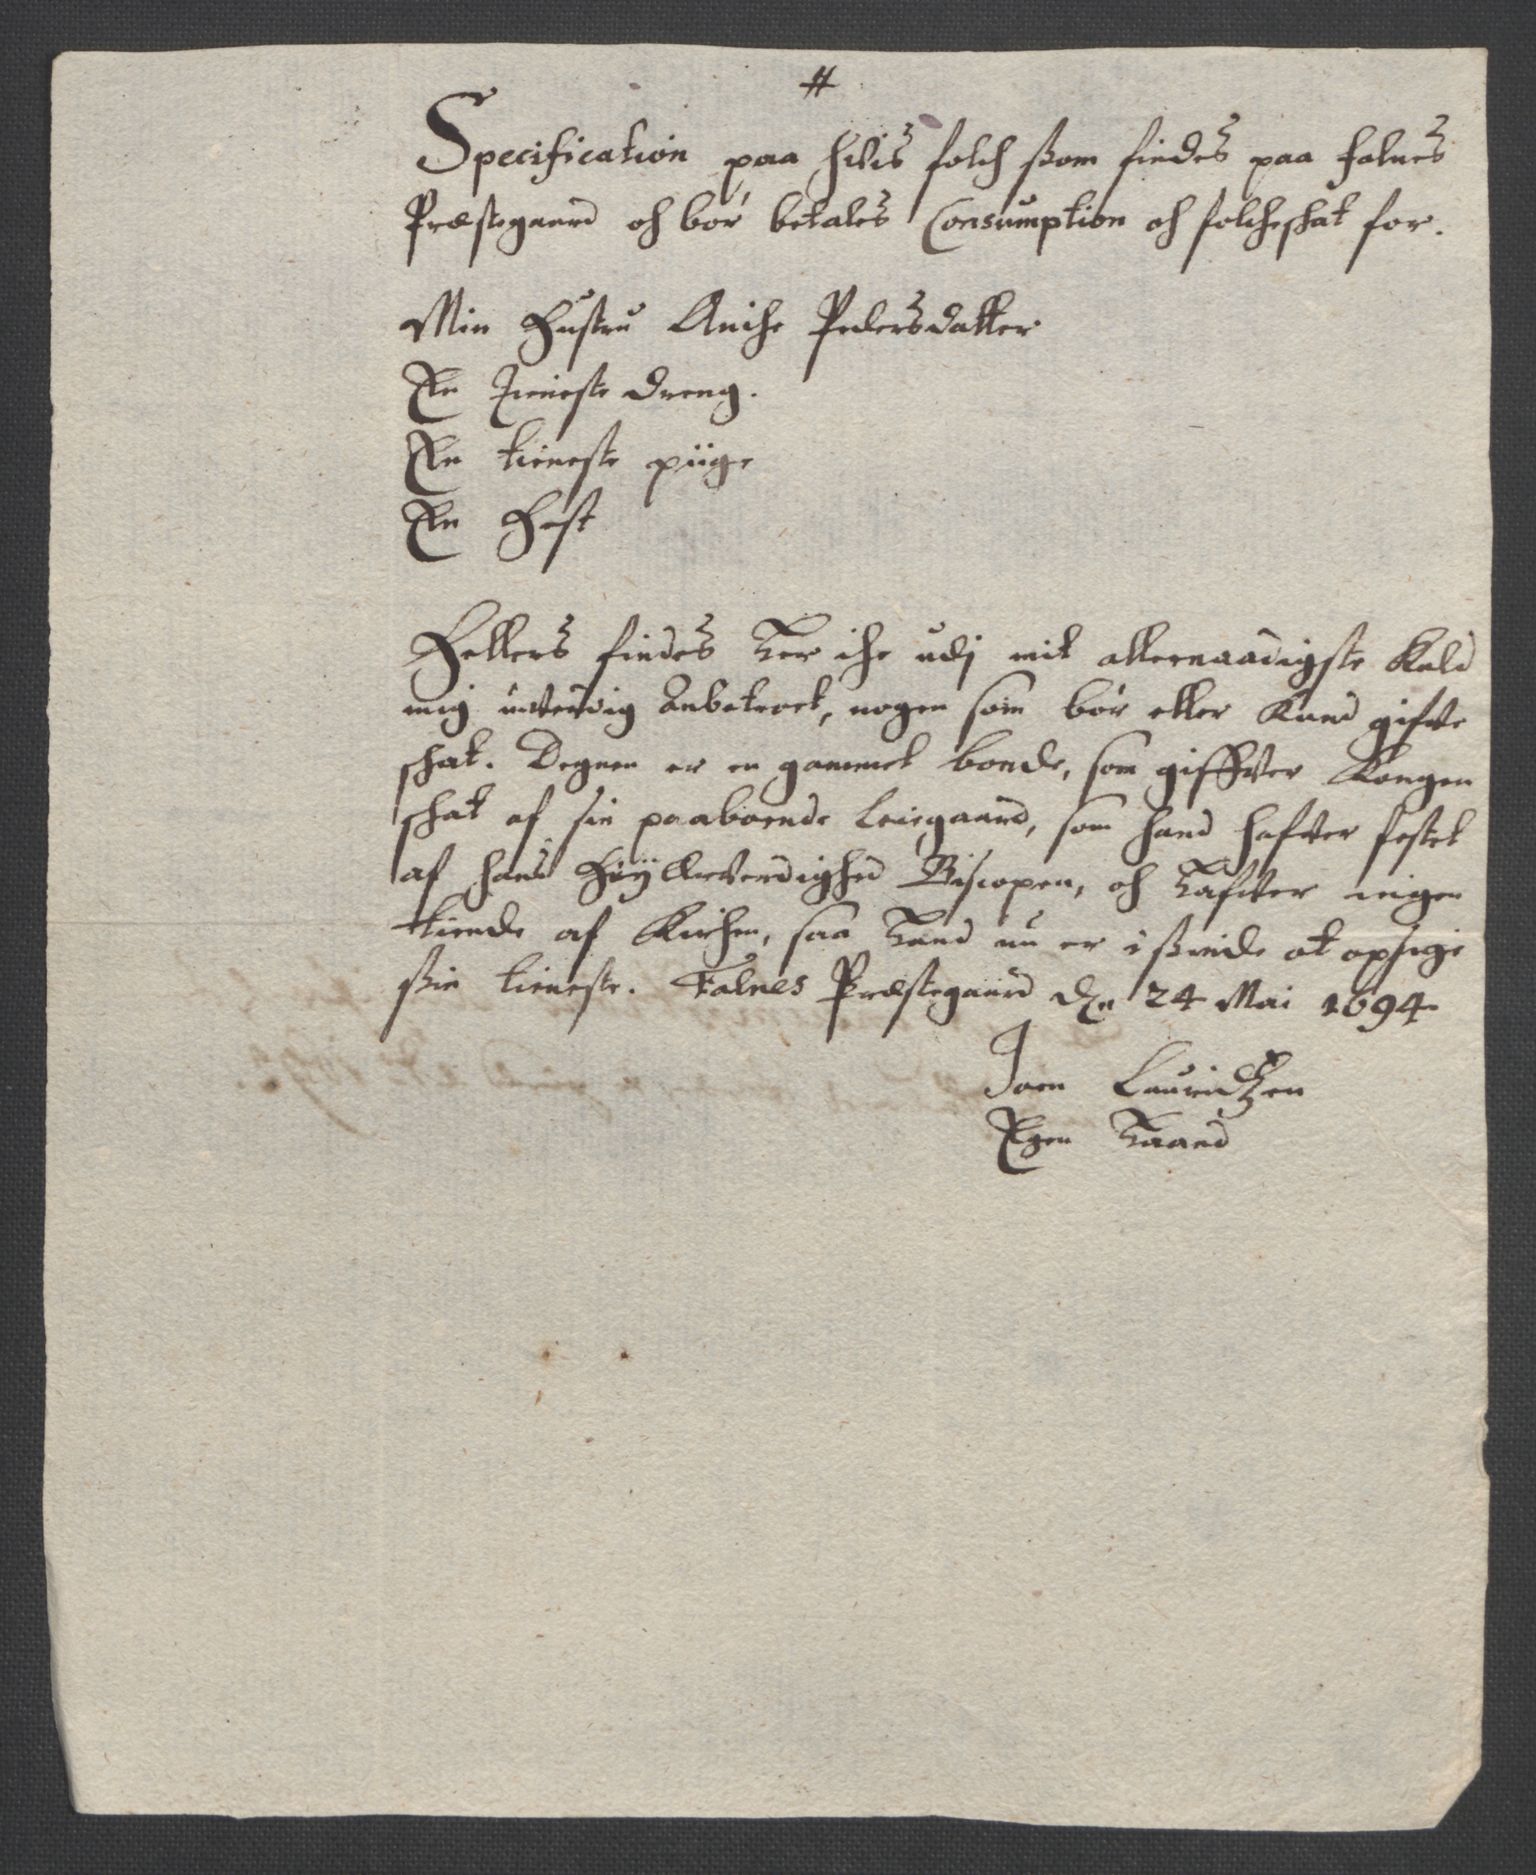 #
Specification paa hvis folch ßom findes paa Falnes
Præstegaard och bør betales Consumption och folcheschat for.
Min Hustru Aniche Pedersdatter
En tieneste dreng.
En tieneste piige
En Hest
Hellers findes her iche udj mit allernaadigste Kald
mig unverdig anbetroet, nogen som bør eller Kand gifve
schat. Degnen er en gammel bonde, som giffver Kongen
schat af sin paaboende Leiegaard, som hand hafver festet
af hans Høÿ Ærverdighed Biscopen, och hafver ingen
tiende af Kirchen, saa hand nu er i ßinde at opsige
ßin tieneste. Falnes Præstegaard den 24 Mai 1694
Joen Lauridtzen
Egen Haand